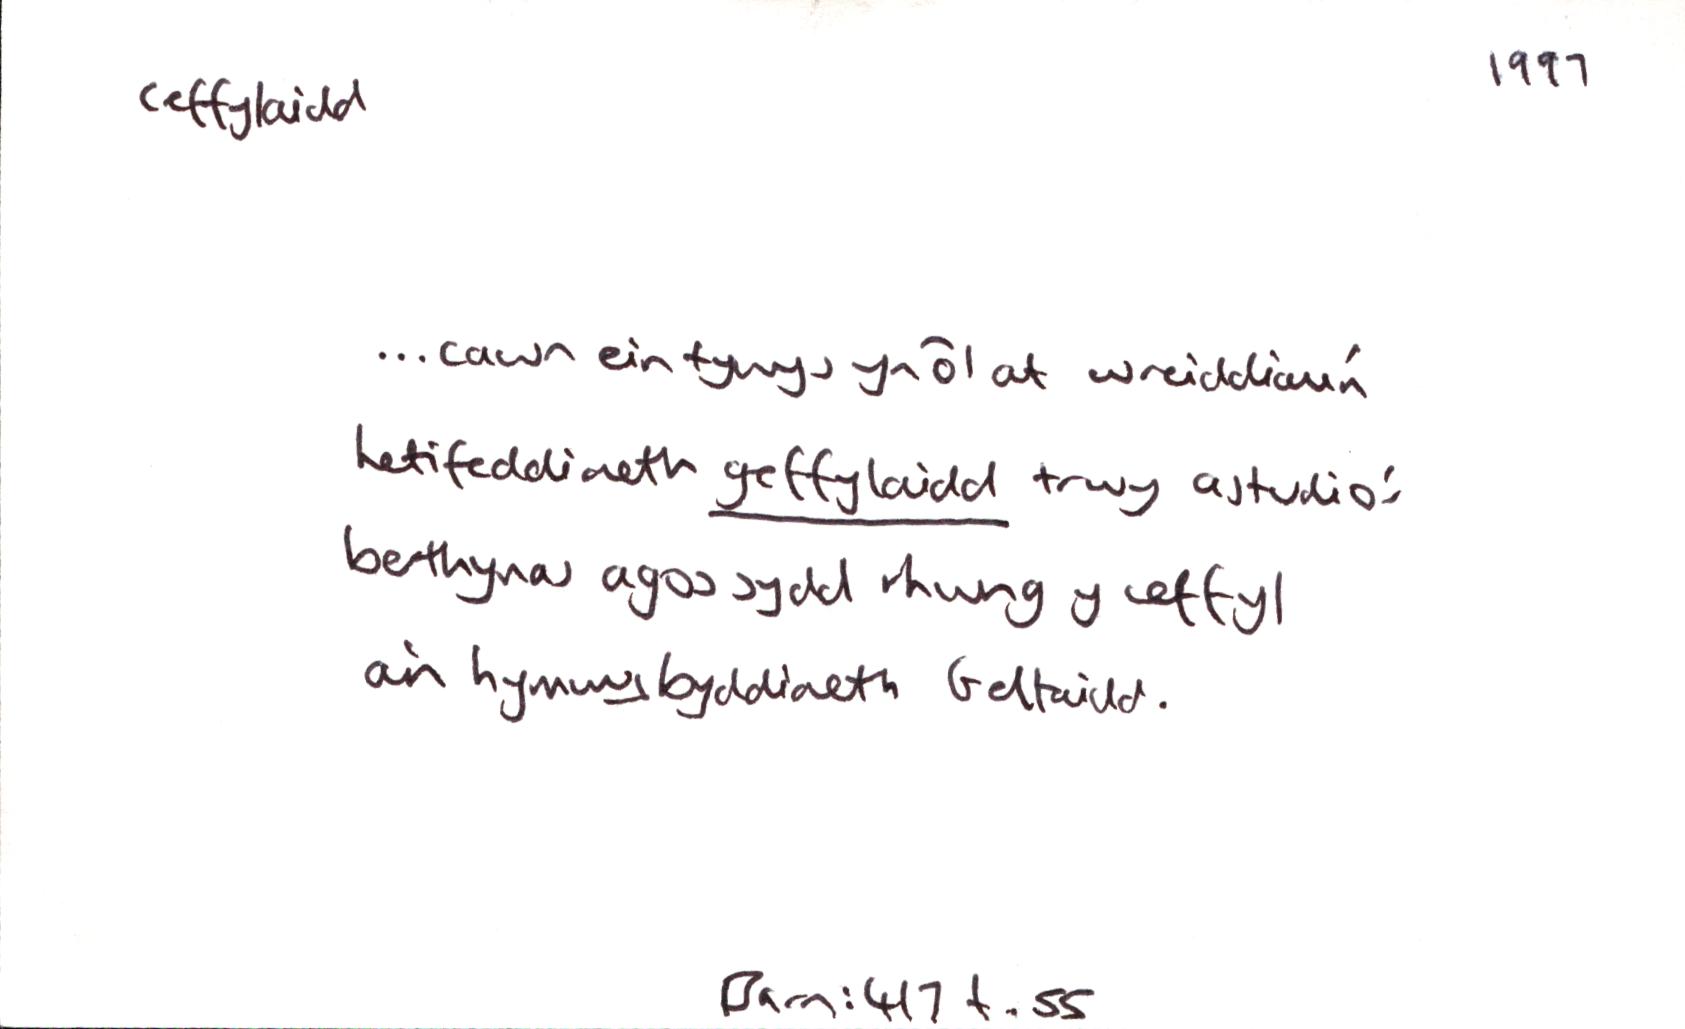 ceffylaidd
1997
...cawn ein tywys yn ôl at wreiddiau'n
hetifeddiaeth geffylaidd trwy astudio'r
berthynas agos sydd rhwng y ceffyl
a'n hymwysbyddiaeth Geltaidd.
Barn: 417 t. 55